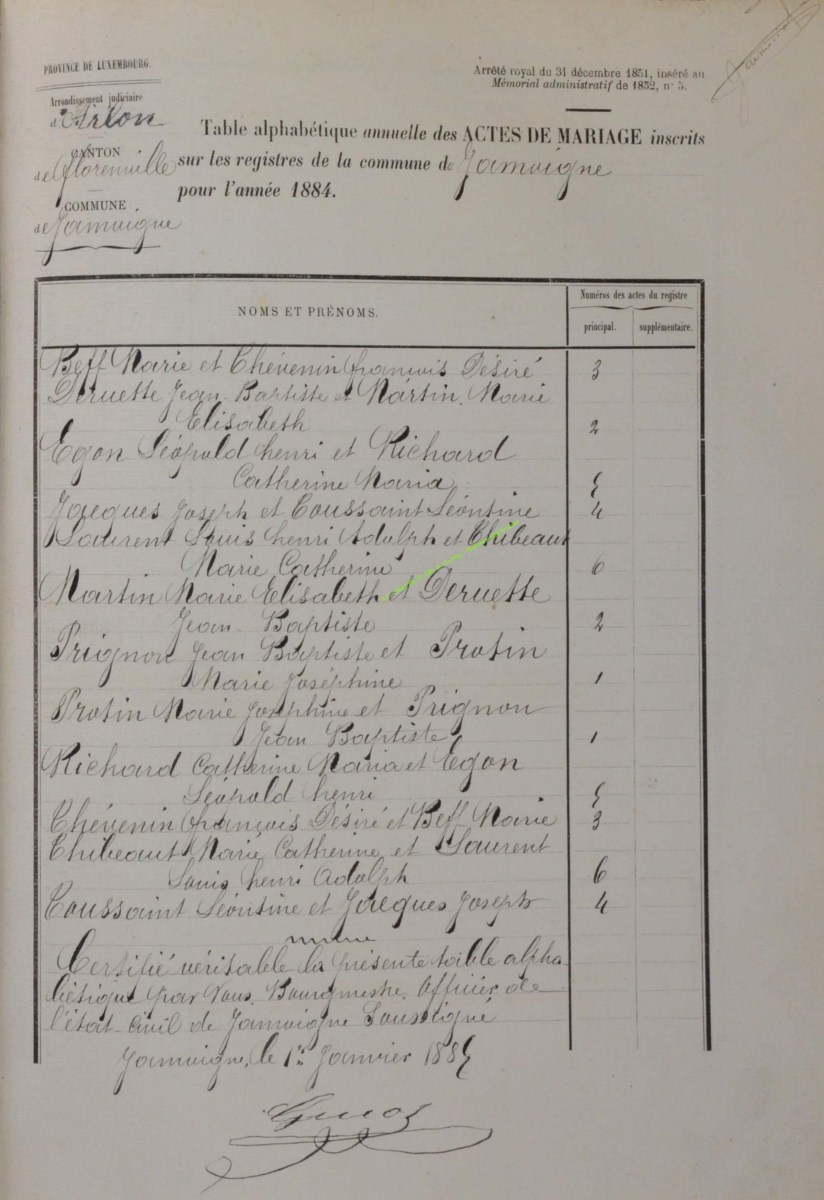 PROVINCE DE LUXEMBOURG.
Arrondissement judiciaire
d'Arlon
CANTON
de Florenville
COMMUNE
de Jamoigne
Arrêté royal du 31 décembre 1851, inséré au
Mémorial administratif de 1852, n° 5.
Table alphabétique annuelle des ACTES DE MARIAGE inscrits
sur les registres de la commune de Jamoigne
pour l'année 1884.
NOMS ET PRÉNOMS.
Numéros des actes du registre
principal. supplémentaire.
Beff Marie et Thévenin françois Désiré 3
Deruette Jean-Baptiste et Martin Marie
Elisabeth 2
Egon Léopold henri et Richard
Catherine Maria 5
Jacques Joseph et Toussaint Léontine 4
Laurent Louis henri Adolph et Thibeaut
Marie Catherine 6
Martin Marie Elisabeth et Deruette
Jean-Baptiste 2
Prignon Jean Baptiste et Protin
Marie Joséphine 1
Protin Marie Joséphine et Prignon
Jean Baptiste 1
Richard Catherine Maria et Egon
Léopold henri 5
Thévenin françois Désiré et Beff Marie 3
Thibeaut Marie Catherine et Laurent
Louis henri Adolph 6
Toussaint Léontine et Jacques Joseph 4
Certifié véritable la présente table alpha-
bétique par Nous, Bourgmestre, Officier de
l'état-Civil de Jamoigne Soussigné
Jamoigne, le 1er Janvier 1885